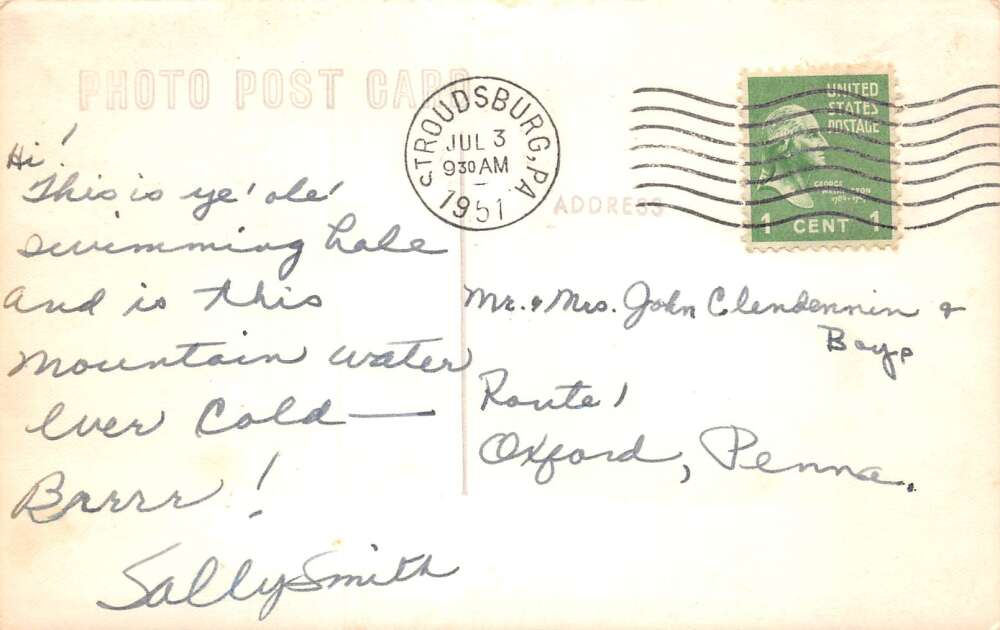 PHOTO POST CARD
STROUDSBURG, PA
JUL 3
9 30 AM
1951
UNITED
STATES
POSTAGE
GEORGE
WASHINGTON
1 CENT 1
ADDRESS
Hi!
This is ye' ole'
swimming hole
and is this
mountain water
ever cold —
Brrrr!
Sally Smith
Mr. & Mrs. John Clendennin &
Boys
Route 1
Oxford, Penna.